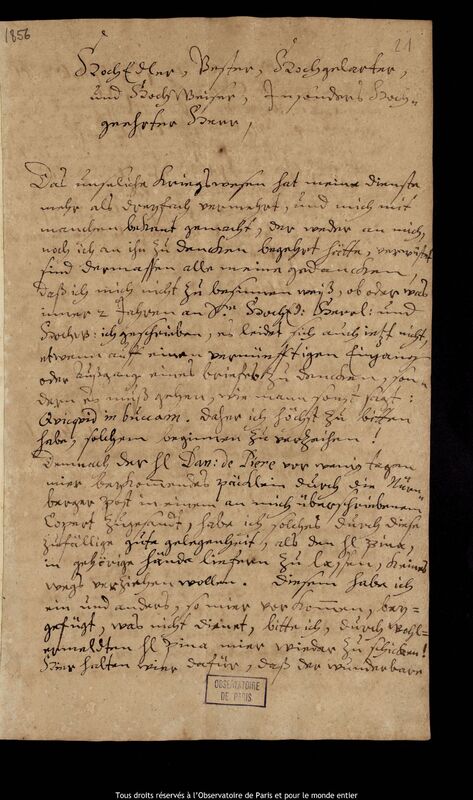 1856
21
HochEdler, Vester, Hochgelarter,
und HochWeiser, Insonders Hoch-
geehrter Herr,
Das unseliche Kriegswesen hat meine dienste
mehr als dreyfach vermehrt, und mich mit
manchen bekant gemacht, der weder an mich,
noch ich an ihn zu dencken begehrt hätte, verwüstet
sind dermassen alle meine gedancken,
daß ich mich nicht zu besinnen weiß, ob oder was
inner 2 Jahren an Hochd: Herrl: und
Hochw: ich geschrieben, es leidet sich auch ietzt nicht,
etwann auf einen vernünfftigen Eingang
oder Außgang eines briefes zu dencken, son-
dern es muß gehen, wie mann sonst sagt:
Qvicqvid in buccam. Daher ich höchst zu bitten
habe, solchem beginnen zu verzeihen!
Demnach der hl Dan: de Piere vor wenig tagen
mier beykommendes päcklein durch die Nürn-
berger post in einem an mich überschriebenem
Copert zugesandt, habe ich solches durch diese
zufällige gute gelegenheit, als den hl Pina,
in gehörige hände liefern zu lassen, keines
wegs verziehen wollen. Diesem habe ich
ein und anders, so mier vorkommen, bey-
gefügt, was nicht dienet, bitte ich, durch wohl-
ermeldten hl Pina mier wieder zu schicken!
Hier halten wier dafür, daß der wunderbare
OBSERVATOIRE
DE PARIS
Tous droits réservés à l'Observatoire de Paris et pour le monde entier